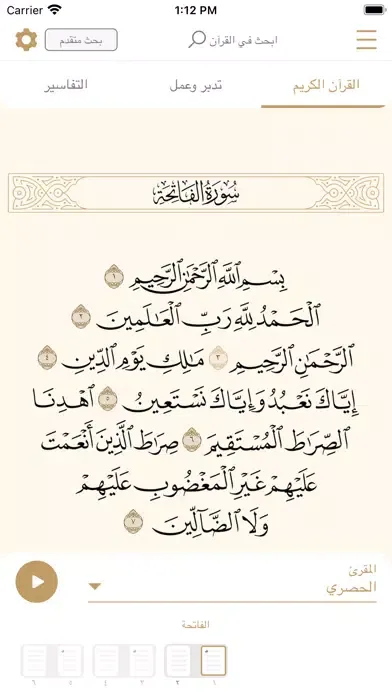 Carrier 1:12 PM
ابحث في القرآن بحث متقدم
القرآن الكريم تدبر وعمل التفاسير
سُورَةُ الفَاتِحَةِ
بِسْمِ ٱللَّهِ ٱلرَّحْمَٰنِ ٱلرَّحِيمِ ١
ٱلْحَمْدُ لِلَّهِ رَبِّ ٱلْعَالَمِينَ ٢
ٱلرَّحْمَٰنِ ٱلرَّحِيمِ ٣ مَالِكِ يَوْمِ ٱلدِّينِ ٤
إِيَّاكَ نَعْبُدُ وَإِيَّاكَ نَسْتَعِينُ ٥ ٱهْدِنَا
ٱلصِّرَاطَ ٱلْمُسْتَقِيمَ ٦ صِرَاطَ ٱلَّذِينَ أَنْعَمْتَ
عَلَيْهِمْ غَيْرِ ٱلْمَغْضُوبِ عَلَيْهِمْ
وَلَا ٱلضَّآلِّينَ ٧
المقرئ
الحصري
الفاتحة
١ ٢ ٣ ٤ ٥ ٦